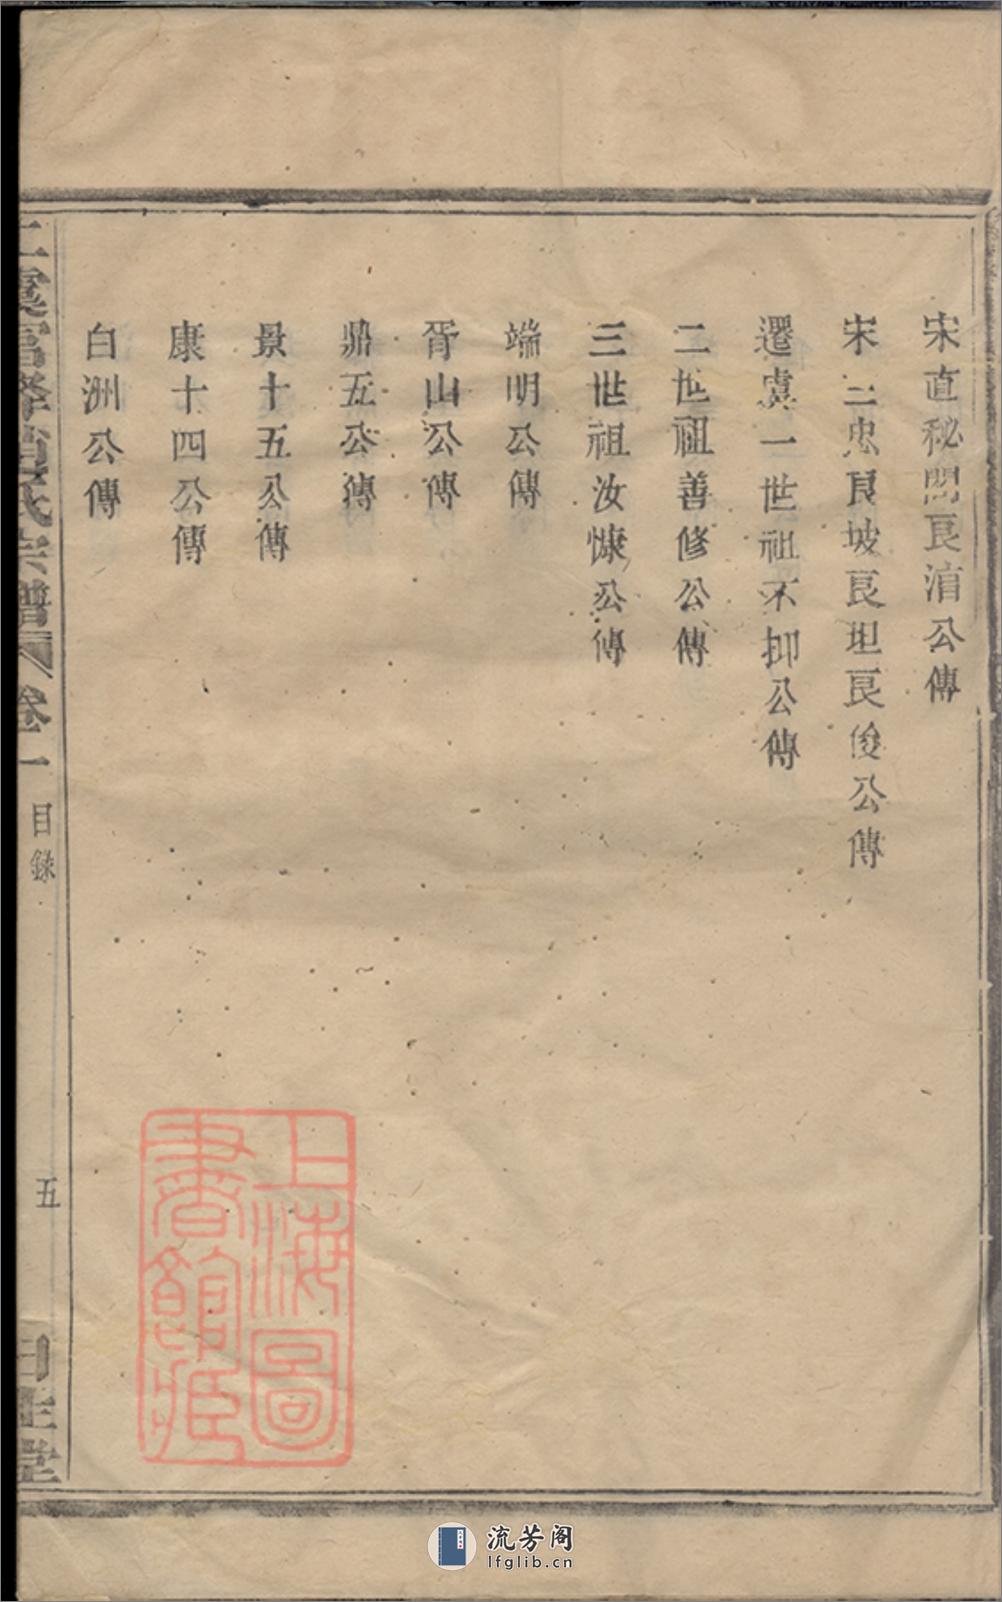 宋直秘閣良淯公傳
宋三忠良坡良坦良俊公傳
遷虞一世祖不抑公傳
二世祖善修公傳
三世祖汝慷公傳
端明公傳
胥山公傳
鼎五公傳
景十五公傳
康十四公傳
白洲公傳
趙氏宗譜
卷一
目錄
五
上海圖書館藏
流芳阁
lfglib.cn